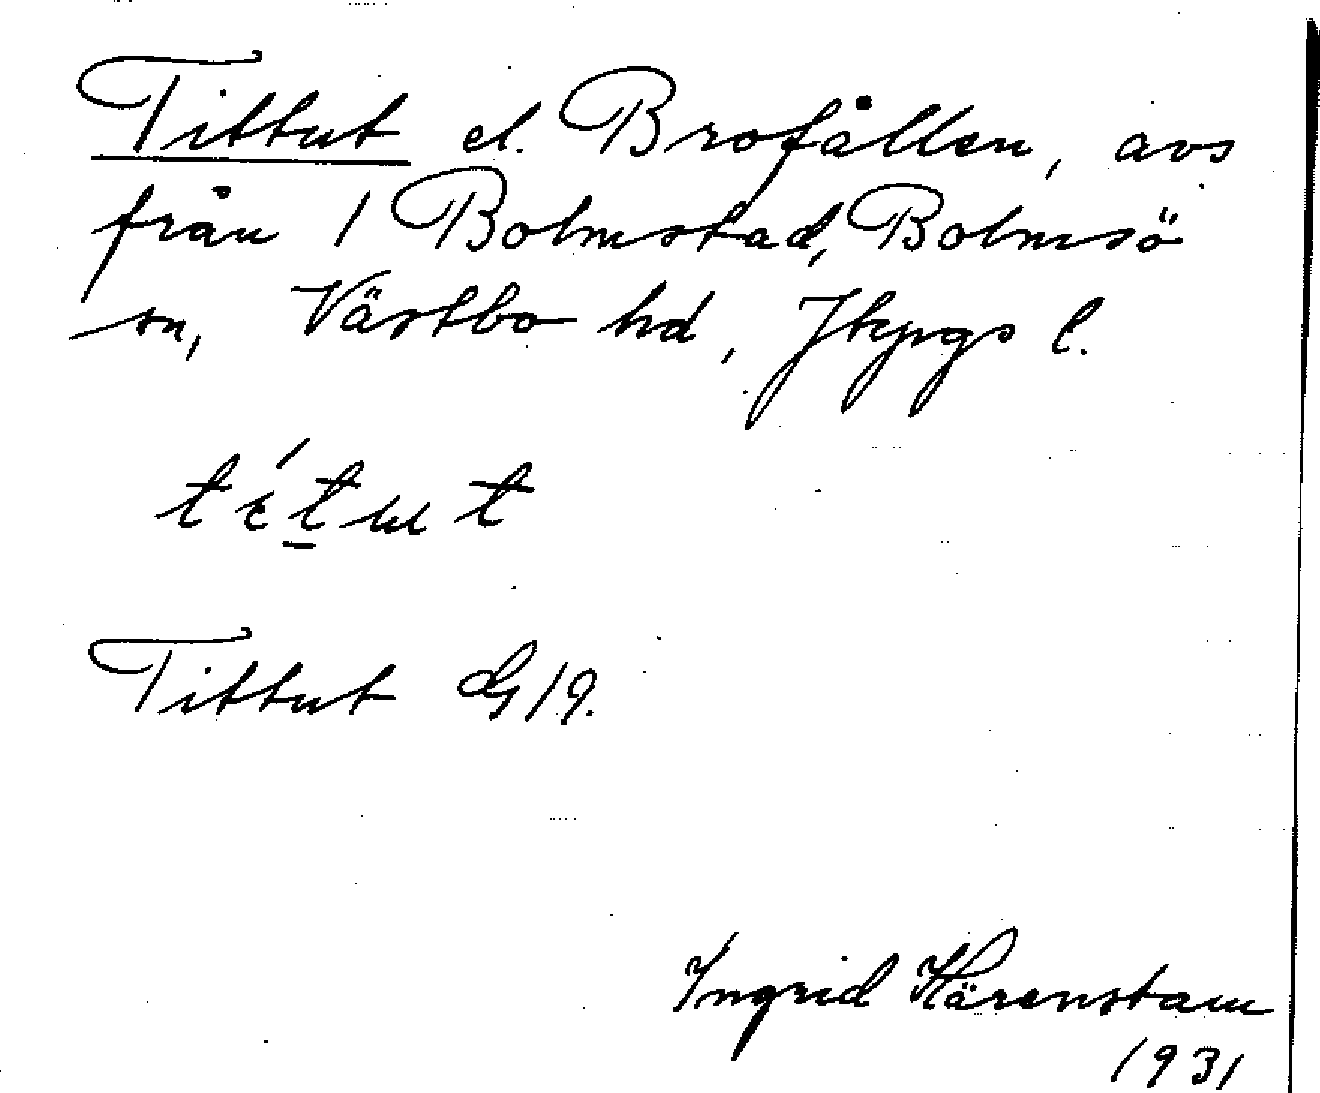 Tittut el. Brofållen, avs
från 1 Bolmstad, Bolmsö
sn, Västbo hd, Jkpgs l.
Tittut G 19.
Ingrid Härenstam
1931